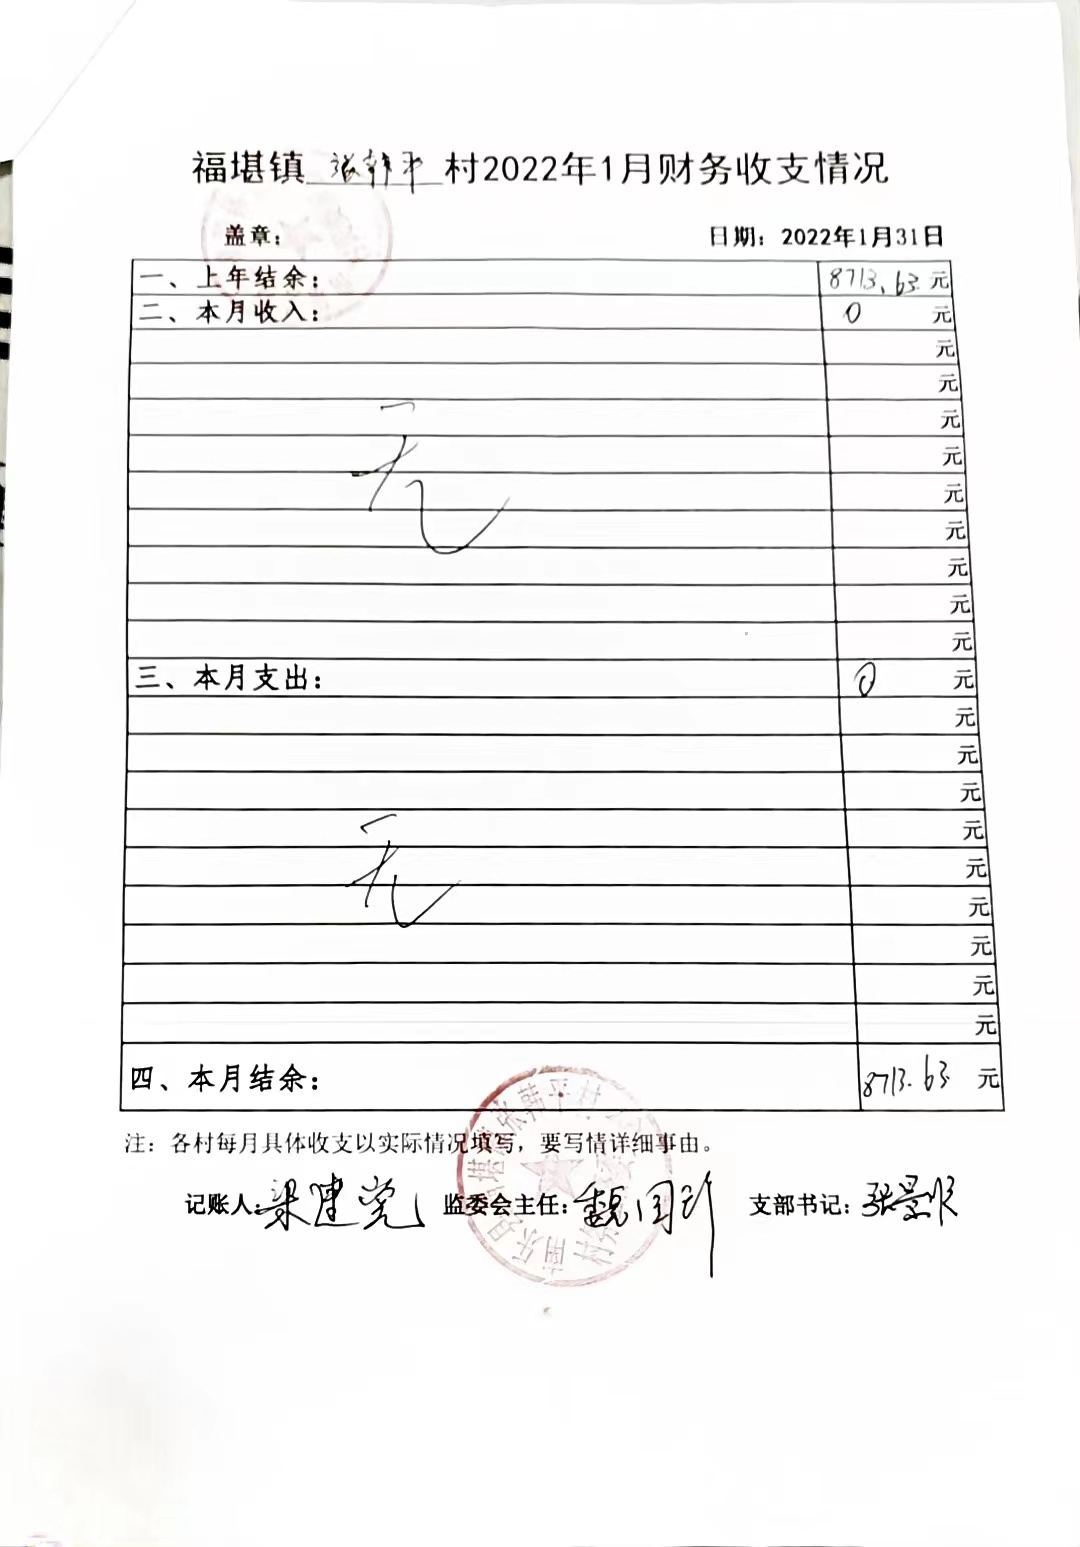 福堪镇 张韩平 村2022年1月财务收支情况
盖章： 日期：2022年1月31日
一、上年结余： 8713.63 元
二、本月收入： 0 元
元
元
元
无 元
元
元
元
元
元
三、本月支出： 0 元
元
元
元
元
无 元
元
元
元
元
四、本月结余： 8713.63 元
注：各村每月具体收支以实际情况填写，要写情详细事由。
记账人：梁建党 监委会主任：魏国 支部书记：张景顺
南乐县福堪镇张韩平村